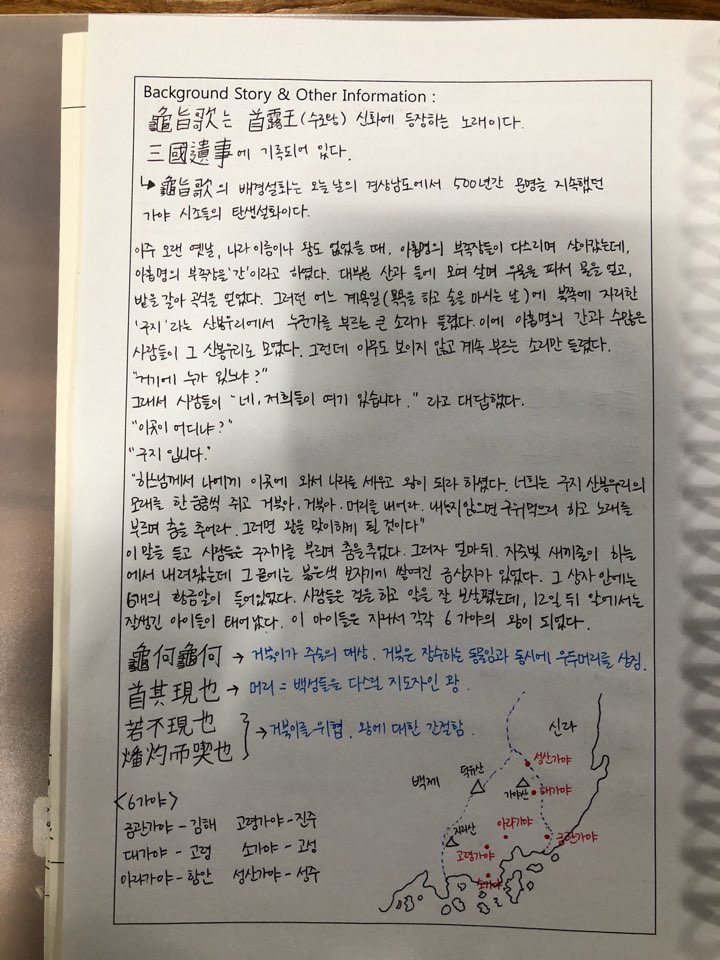 Background Story & Other Information :
龜旨歌는 首露王(수로왕) 신화에 등장하는 노래이다.
三國遺事에 기록되어 있다.
↳ 龜旨歌의 배경설화는 오늘날의 경상남도에서 500년간 문명을 지속했던
가야 시조들의 탄생설화이다.
아주 오랜 옛날, 나라 이름이나 왕도 없었을 때, 아홉명의 부족장들이 다스리며 살아갔는데,
아홉명의 부족장을 '간'이라고 하였다. 대부분 산과 들에 모여 살며 우물을 파서 물을 얻고,
밭을 갈아 곡식을 얻었다. 그러던 어느 계욕일(목욕을 하고 술을 마시는 날)에 북쪽에 자리한
'구지'라는 산봉우리에서 누군가를 부르는 큰 소리가 들렸다. 이에 아홉명의 간과 수많은
사람들이 그 산봉우리로 모였다. 그런데 아무도 보이지 않고 계속 부르는 소리만 들렸다.
"거기에 누가 있느냐?"
그래서 사람들이 "네, 저희들이 여기 있습니다." 라고 대답했다.
"이곳이 어디냐?"
"구지 입니다."
"하느님께서 나에게 이곳에 와서 나라를 세우고 왕이 되라 하셨다. 너희는 구지 산봉우리의
모래를 한 움큼씩 쥐고 거북아, 거북아, 머리를 내어라. 내놓지않으면 구워먹으리 하고 노래를
부르며 춤을 추어라. 그러면 왕을 맞이하게 될 것이다"
이 말을 듣고 사람들은 구지가를 부르며 춤을추었다. 그러자 얼마뒤, 자주빛 새끼줄이 하늘
에서 내려왔는데 그 끝에는 붉은색 보자기에 쌓여진 금상자가 있었다. 그 상자 안에는
6개의 황금알이 들어있었다. 사람들은 절을 하고 알을 잘 보살폈는데, 12일 뒤 알에서는
잘생긴 아이들이 태어났다. 이 아이들은 자라서 각각 6 가야의 왕이 되었다.
龜何龜何 → 거북이가 주술의 대상. 거북은 장수하는 동물임과 동시에 우두머리를 상징.
首其現也 → 머리 = 백성들을 다스릴 지도자인 왕.
若不現也
燔灼而喫也 → 거북이를 위협. 왕에 대한 간절함.
<6가야>
금관가야 - 김해 고령가야 - 진주
대가야 - 고령 소가야 - 고성
아라가야 - 함안 성산가야 - 성주
신라
백제
덕유산
성산가야
가야산
대가야
지리산
아라가야
금관가야
고령가야
소가야